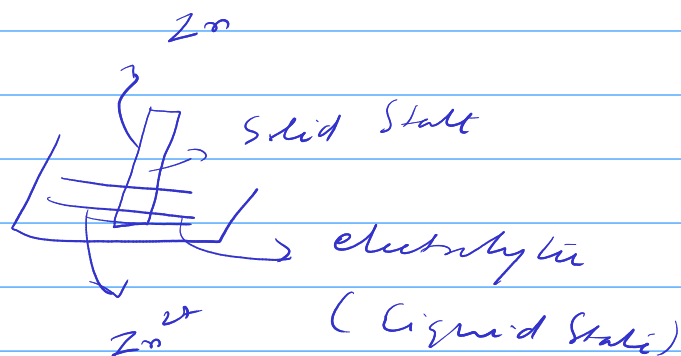 Zn
Solid State
electrolytic
(Liquid State)
Zn²⁺